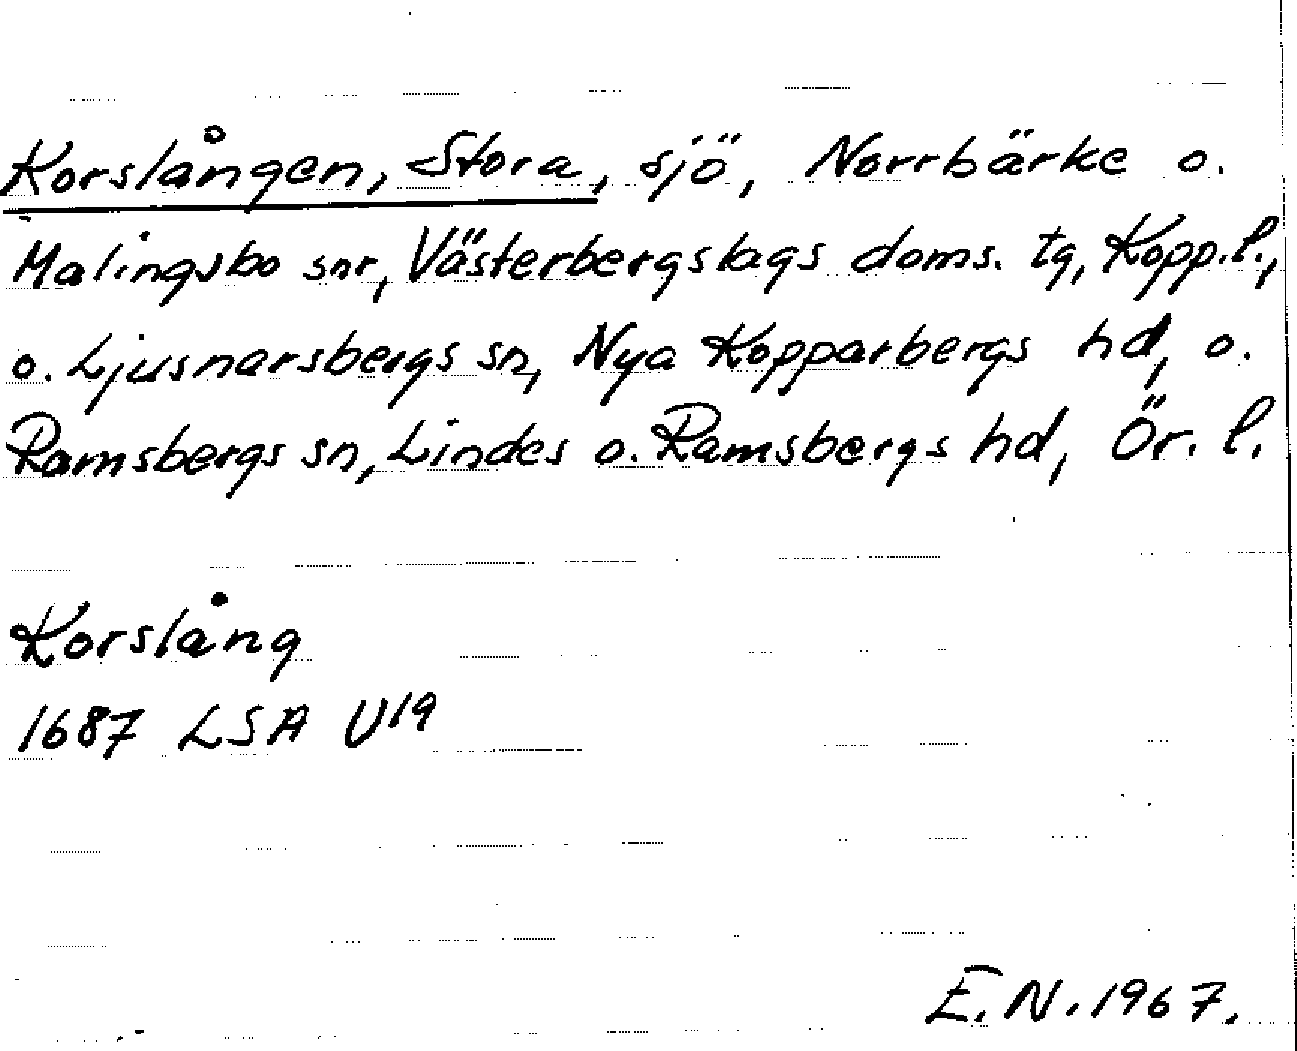 Korslången, Stora, sjö, Norrbärke o.
Malingsbo snr, Västerbergslags doms. tg, Kopp.l.,
o. Ljusnarsbergs sn, Nya Kopparbergs hd, o.
Ramsbergs sn, Lindes o. Ramsbergs hd, Ör. l.
Korslång
1687 LSA U19
E.N. 1967.